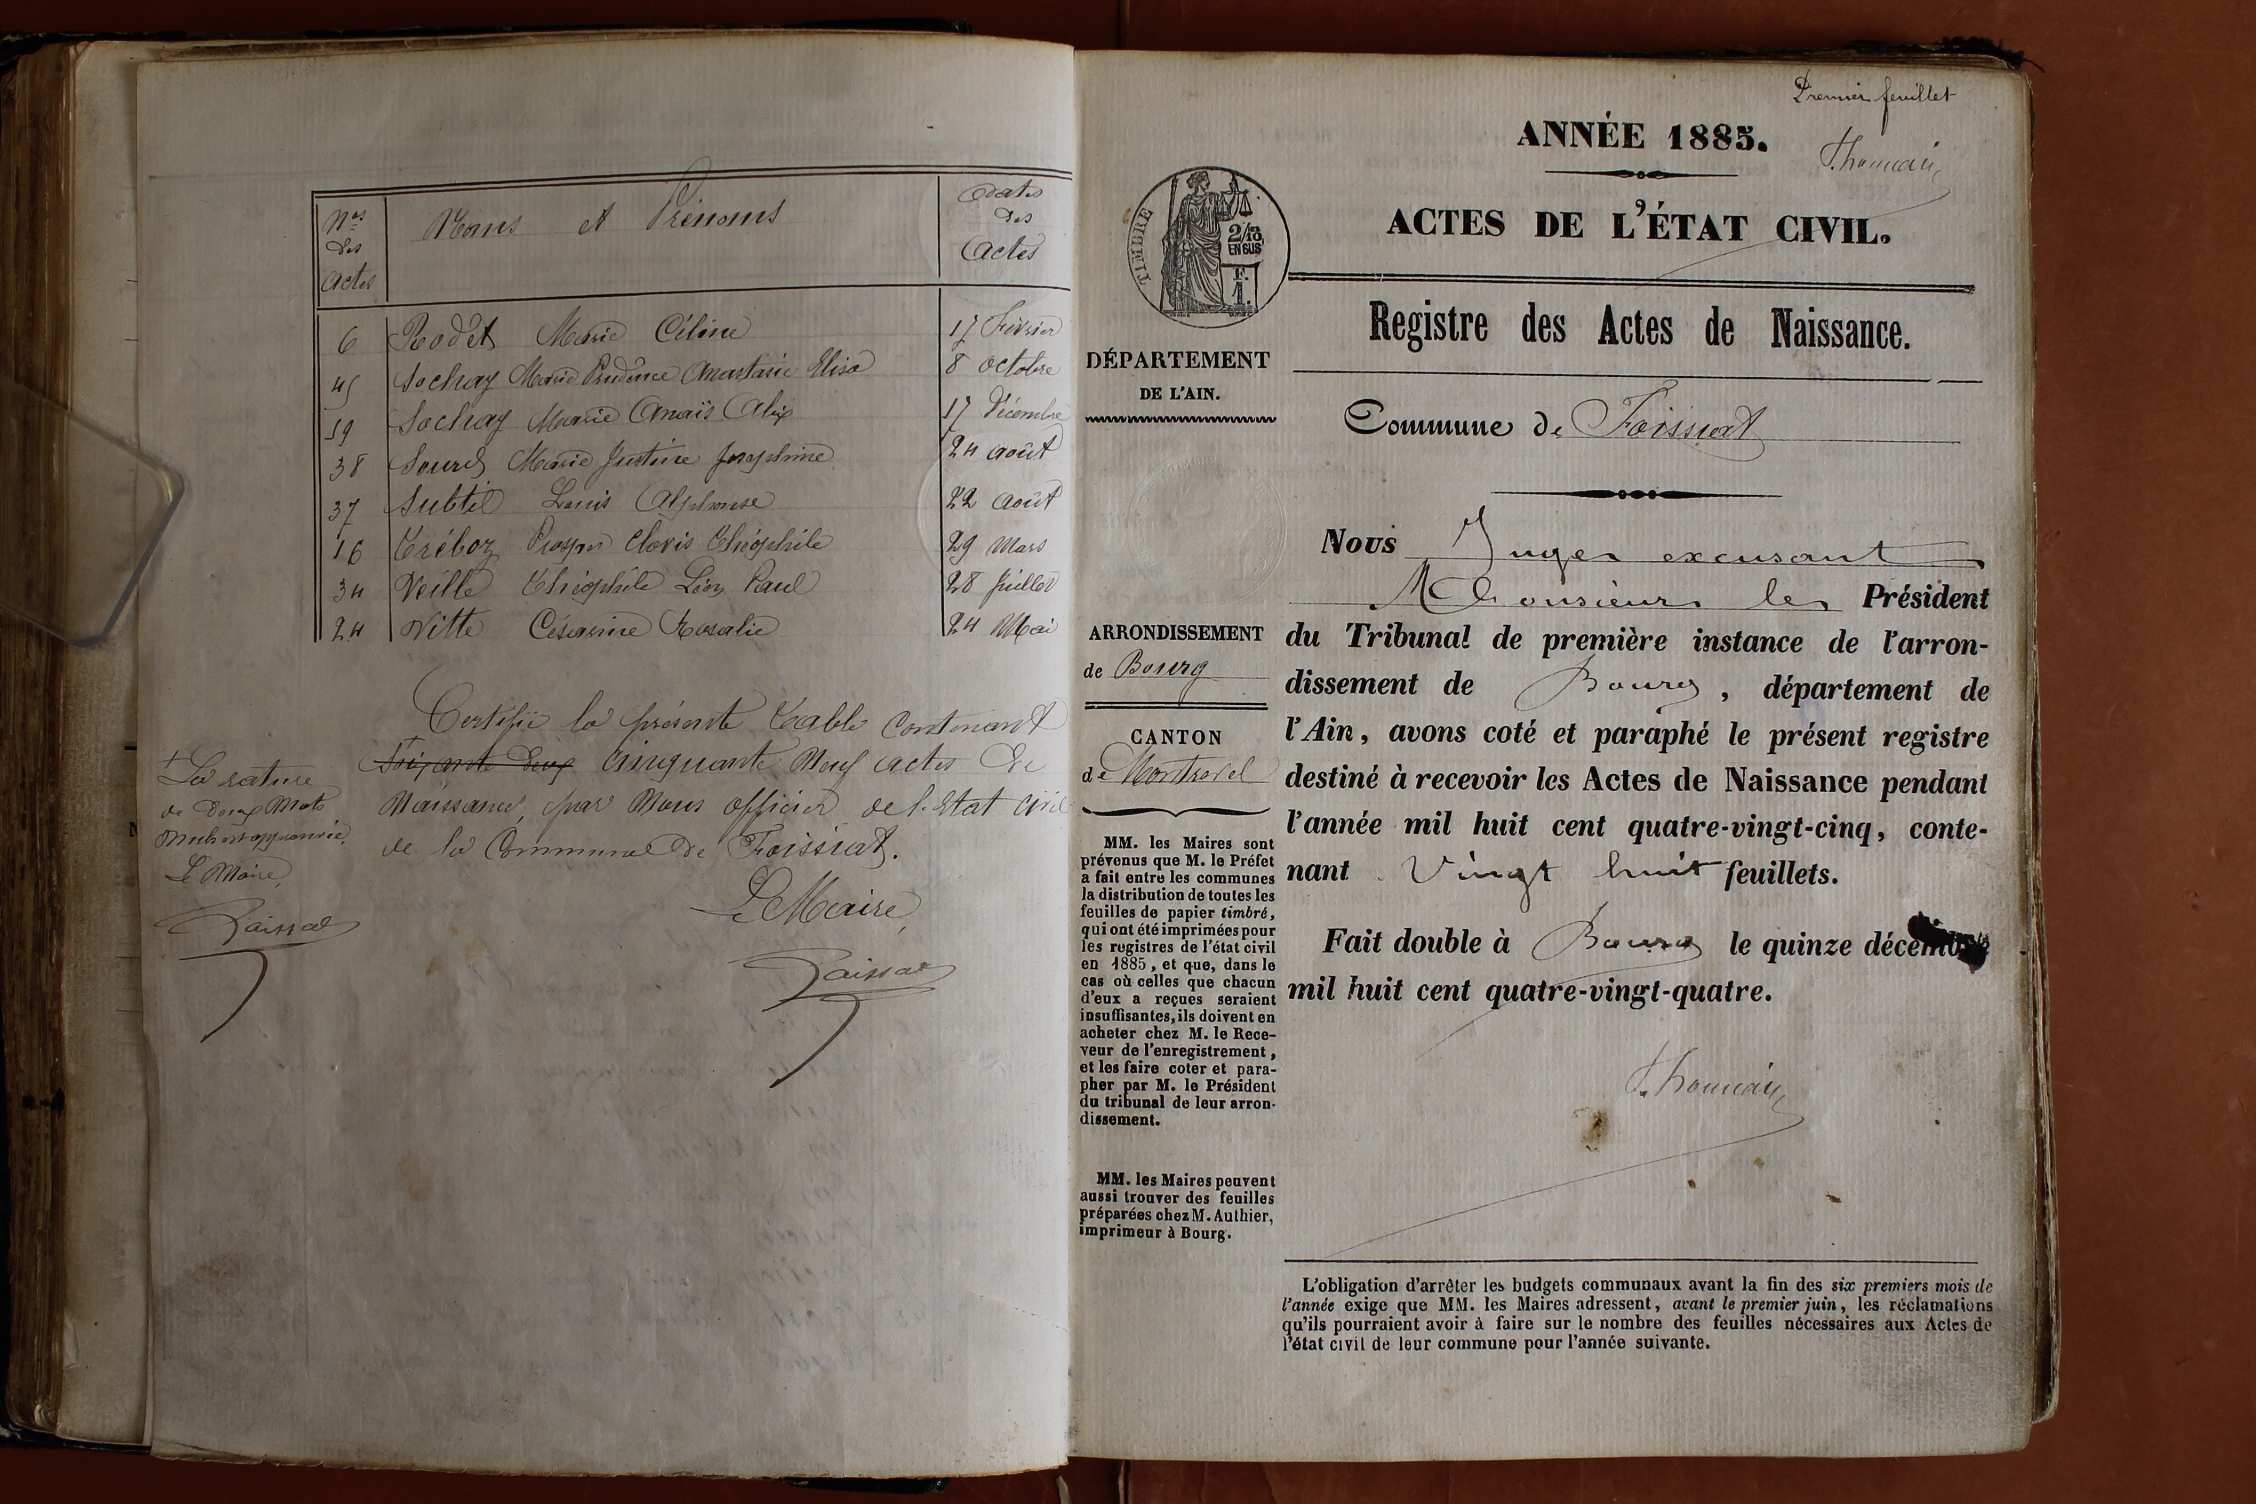 Nos des actes
Noms et Prénoms
Dates des Actes
6 Rodet Marie Céline 17 Février
45 Sochay Marie Prudence Anastasie Elisa 8 Octobre
59 Sochay Marie Anaïs Alix 17 Décembre
38 Sourd Marie Justine Joséphine 24 août
37 Subtil Louis Alphonse 22 août
16 Tréboz Prosper Clovis Théophile 29 Mars
34 Veille Théophile Léon Paul 28 Juillet
24 Vitte Césarine Rosalie 24 Mai
Certifié la présente Table contenant
cinquante Neuf actes de
Naissance, par Nous officier de l'Etat civil
de la Commune de Foissiat.
Le Maire,
La rature
de deux Mots
approuvée.
Le Maire,
Premier feuillet
ANNÉE 1885.
ACTES DE L'ÉTAT CIVIL.
TIMBRE
2/10 EN SUS
F. 1.
Registre des Actes de Naissance.
Commune de Foissiat
DÉPARTEMENT
DE L'AIN.
ARRONDISSEMENT
de Bourg
CANTON
de Montrevel
MM. les Maires sont
prévenus que M. le Préfet
a fait entre les communes
la distribution de toutes les
feuilles de papier timbré,
qui ont été imprimées pour
les registres de l'état civil
en 1885, et que, dans le
cas où celles que chacun
d'eux a reçues seraient
insuffisantes, ils doivent en
acheter chez M. le Rece-
veur de l'enregistrement,
et les faire coter et para-
pher par M. le Président
du tribunal de leur arron-
dissement.
MM. les Maires peuvent
aussi trouver des feuilles
préparées chez M. Authier,
imprimeur à Bourg.
Nous Juge excusant
Monsieur le Président
du Tribunal de première instance de l'arron-
dissement de Bourg, département de
l'Ain, avons coté et paraphé le présent registre
destiné à recevoir les Actes de Naissance pendant
l'année mil huit cent quatre-vingt-cinq, conte-
nant Vingt huit feuillets.
Fait double à Bourg le quinze décembre
mil huit cent quatre-vingt-quatre.
L'obligation d'arrêter les budgets communaux avant la fin des six premiers mois de
l'année exige que MM. les Maires adressent, avant le premier juin, les réclamations
qu'ils pourraient avoir à faire sur le nombre des feuilles nécessaires aux Actes de
l'état civil de leur commune pour l'année suivante.